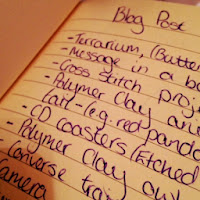 Blog Post
- Terrarium, (Butter
- Message in a bo
- Cross Stitch Proje
- Polymer Clay ani
tail - (e.g. red panda
- CD coasters (Etched
- Polymer Clay owl
- Converse tra
Camera